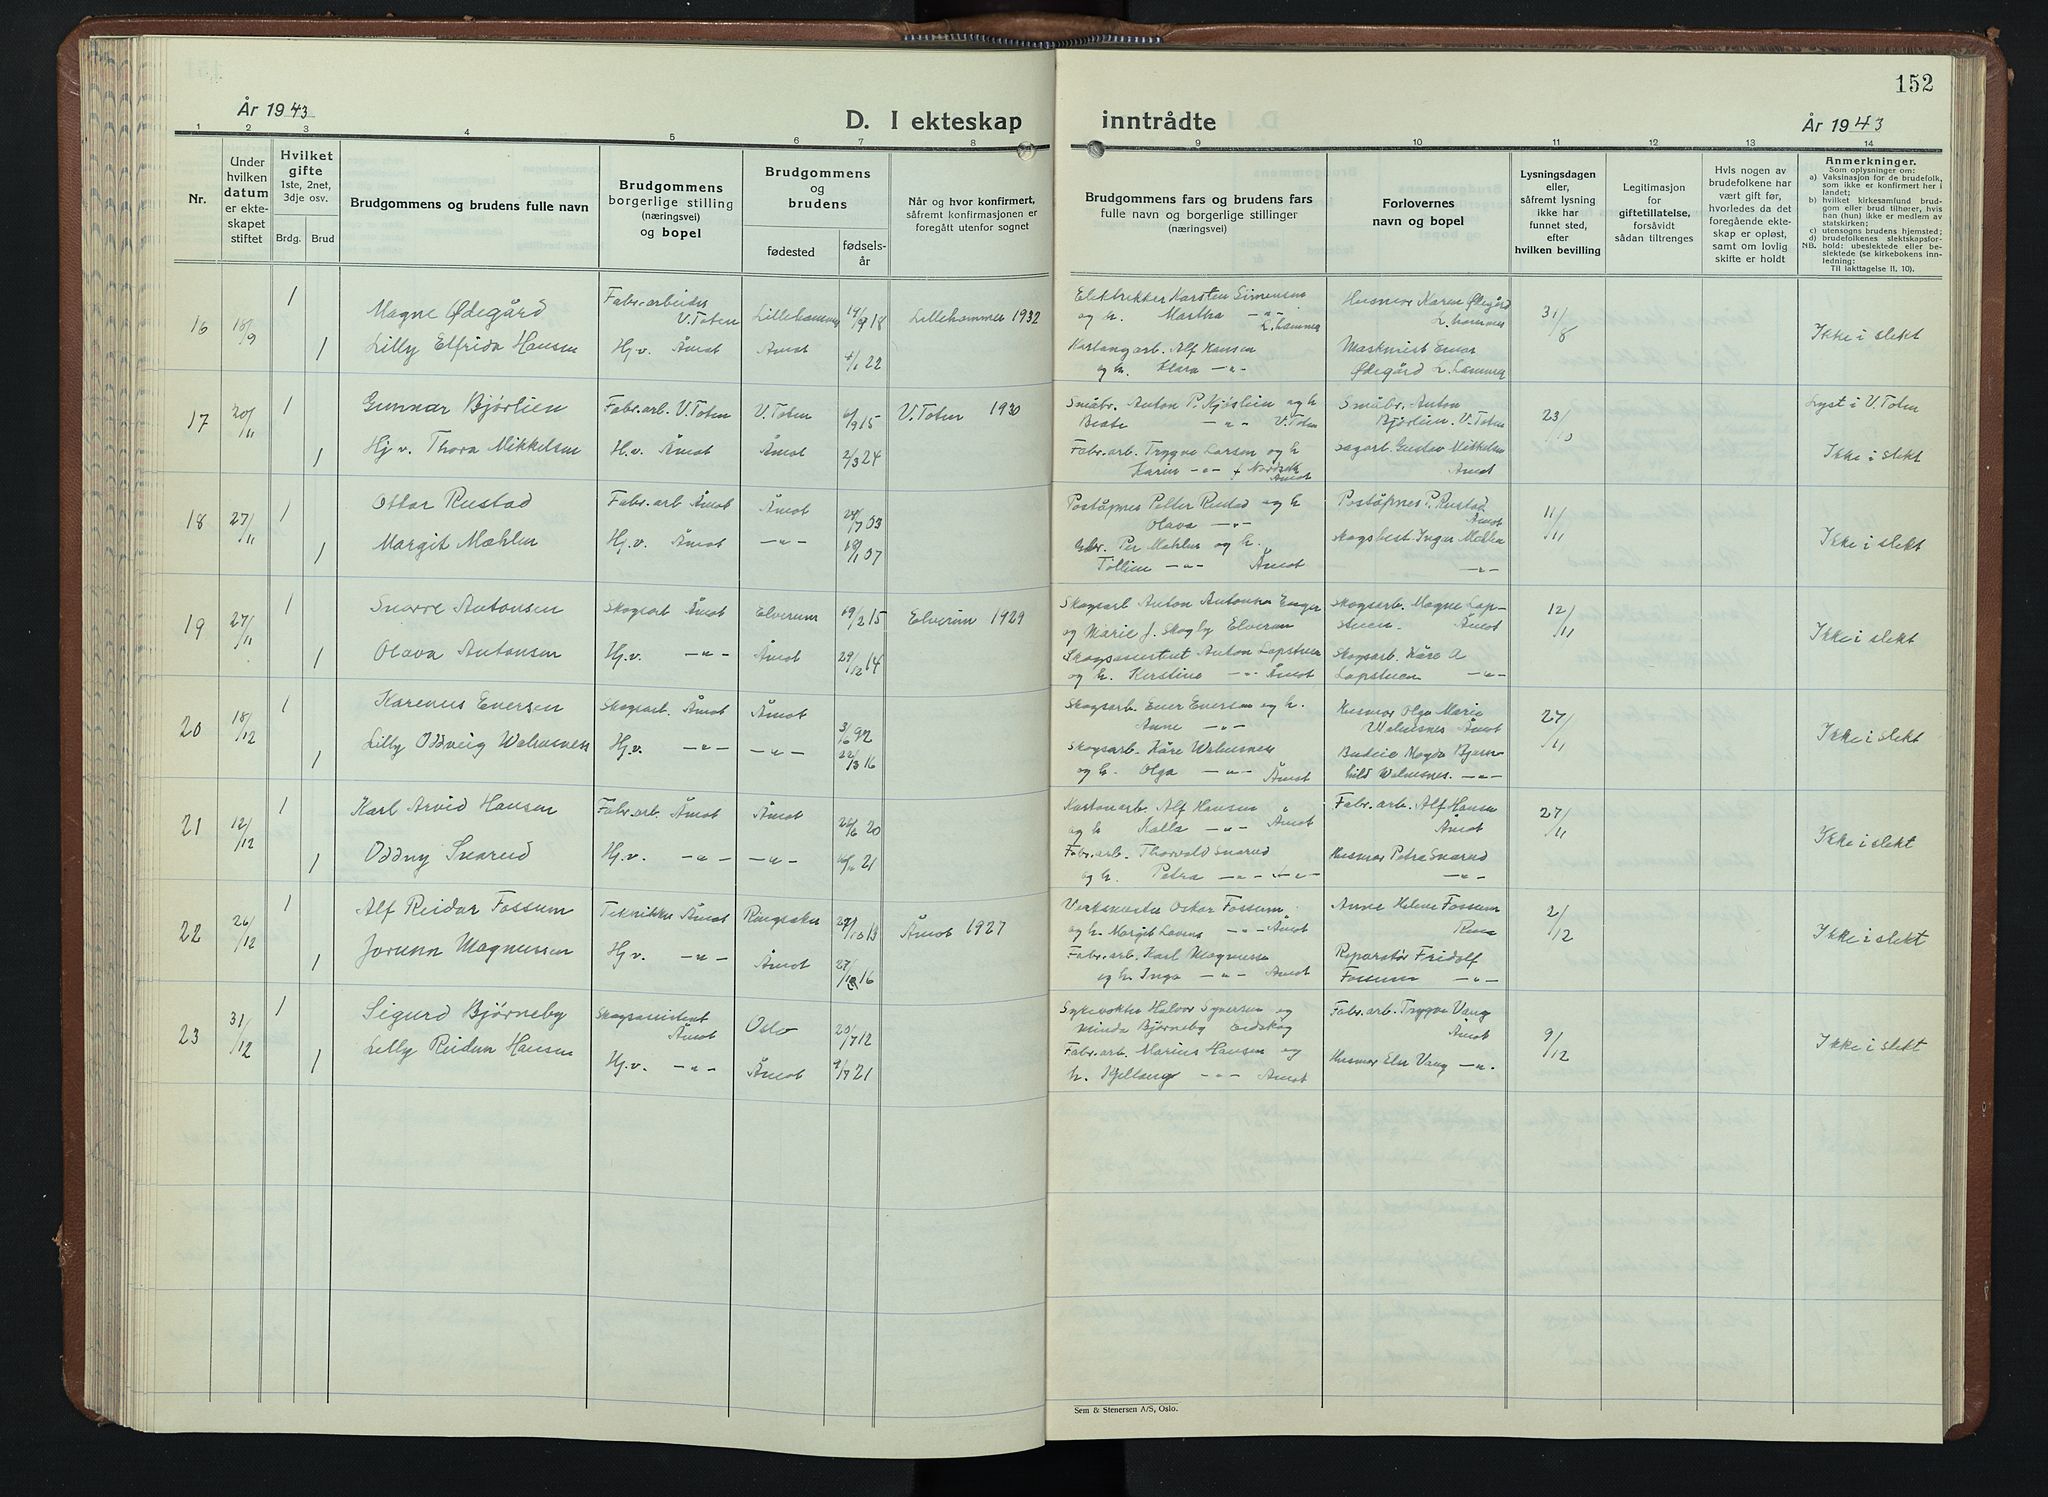 152
År 1943
D. I ekteskap
inntrådte
År 1943
1 2 3 4 5 6 7 8
9 10 11 12 13 14
Nr.
Under
hvilken
datum
er ekte-
skapet
stiftet
Hvilket
gifte
1ste, 2net,
3dje osv.
Brdg. Brud
Brudgommens og brudens fulle navn
Brudgommens
borgerlige stilling
(næringsvei)
og bopel
Brudgommens
og
brudens
fødested
fødsels-
år
Når og hvor konfirmert,
såfremt konfirmasjonen er
foregått utenfor sognet
Brudgommens fars og brudens fars
fulle navn og borgerlige stillinger
(næringsvei)
Forlovernes
navn og bopel
Lysningsdagen
eller,
såfremt lysning
ikke har
funnet sted,
efter
hvilken bevilling
Legitimasjon
for
giftetillatelse,
forsåvidt
sådan tiltrenges
Hvis nogen av
brudefolkene har
vært gift før,
hvorledes da det
foregående ekte-
skap er opløst,
samt om lovlig
skifte er holdt
Anmerkninger.
Som oplysninger om:
a) Vaksinasjon for de brudefolk,
som ikke er konfirmert her i
landet;
b) hvilket kirkesamfund brud-
gom eller brud tilhører, hvis
han (hun) ikke er medlem av
statskirken;
c) utensogns brudens hjemsted;
d) brudefolkenes slektskapsfor-
NB. hold: ubeslektede eller be-
slektede (se kirkebokens inn-
ledning:
Til iakttagelse II. 10).
16 18/9 1 Magne Ødegård Fabr.arbeider V.Toten Lillehammer 14/9 18 Lillehammer 1932
1 Lilly Elfrida Hansen Hj.v. Åmot Åmot 4/1 22
Elektrikker Karsten Simensen
og h. Martha -"- L.hammer
Kartongarb. Alf Hansen
og h. Klara -"-
Husmor Karen Ødegård
L.hammer
Maskinist Einar
Ødegård L.hammer
31/8
Ikke i slekt
17 20/11 1 Gunnar Bjørlien Fabr.arb. V.Toten V.Toten /9 15 V.Toten 1930
1 Hj v. Thora Mikkelsen H.v. Åmot Åmot 2/3 24
Småbr. Anton P. og h
Beate -"- V.Toten
Fabr.arb. Trygve Larsen og h
Karin -"- Åmot
Småbr. Anton
Bjørlien. V.Toten
sagarb. Gustav Mikkelsen
Åmot
23/10
Lyst i V.Toten
Ikke i slekt
18 27/11 1 Ottar Rustad Fabr.arb Åmot Åmot /7 03
1 Margit Mæhlen Hj.v. Åmot -"- /1 07
Poståpner Petter Rustad og h
Olava -"-
Per Mæhlen og h.
Åmot
Poståpner P. Rustad
Åmot
skogsbest. Inger
-"-
11/11
Ikke i slekt
19 27/11 1 Snorre Antonsen Skogsarb Åmot Elverum 19/2 15 Elverum 1929
1 Olava Antonsen Hj.v. -"- Åmot 29/12 14
Skogsarb Anton Antonsen
og Marie J. Skogly Elverum
Skogsassistent Anton Lapstuen
og h. Kerstine -"- Åmot
Skogsarb. Magne Lap-
stuen. Åmot
Skogsarb. Kåre A
Lapstuen -"-
12/11
Ikke i slekt
20 18/12 1 Karenus Eversen Skogsarb. Åmot Åmot 3/6 92
1 Lilly Oddveig Walnesnes Hj.v. -"- -"- 22/3 16
Skogsarb. Ener Eversen og h.
Anne -"-
Skogsarb. Kåre Walnesnes
og h. Olga -"- Åmot
Husmor Olga Marie
Walnesnes Åmot
Budeie Magda Bjørn-
hild Walnesnes. -"-
27/11
Ikke i slekt
21 12/12 1 Karl Arvid Hansen Fabr.arb. Åmot Åmot 26/6 20
1 Oddny Snarud Hj.v. -"- -"- 21
Kartonarb. Alf Hansen
og h Kalla -"- Åmot
Fabr.arb. Thorvald Snarud
og h. Petra -"- -"-
Fabr.arb. Alf Hansen
Åmot
Husmor Petra Snarud
-"-
27/11
Ikke i slekt
22 26/12 1 Alf Reidar Fossum Tekniker Åmot Ringsaker /10 13 Åmot 1927
1 Jorunn Magnussen Hj.v. -"- Åmot 27/ 16
Verksmester Oskar Fossum
og h. Margit Lovens -"- Åmot
Fabr.arb. Karl Magnussen
og h. Inga -"- Åmot
Anne Helene Fossum
Rena
Reparatør Fridolf
Fossum -"-
2/12
Ikke i slekt
23 31/12 1 Sigurd Bjørneby Skogsassistent Åmot Oslo 20/7 12
1 Lilly Reidun Hansen Hj.v. -"- Åmot 9/7 21
Sykevokter Halvor Syversen og
Minda Bjørneby Eidskog
Fabr.arb. Marius Hansen og
h. -"- Åmot
Fabr.arb. Trygve Vang
Åmot
Husmor Elsa Vang -"-
9/12
Ikke i slekt
Sem & Stenersen A/S, Oslo.